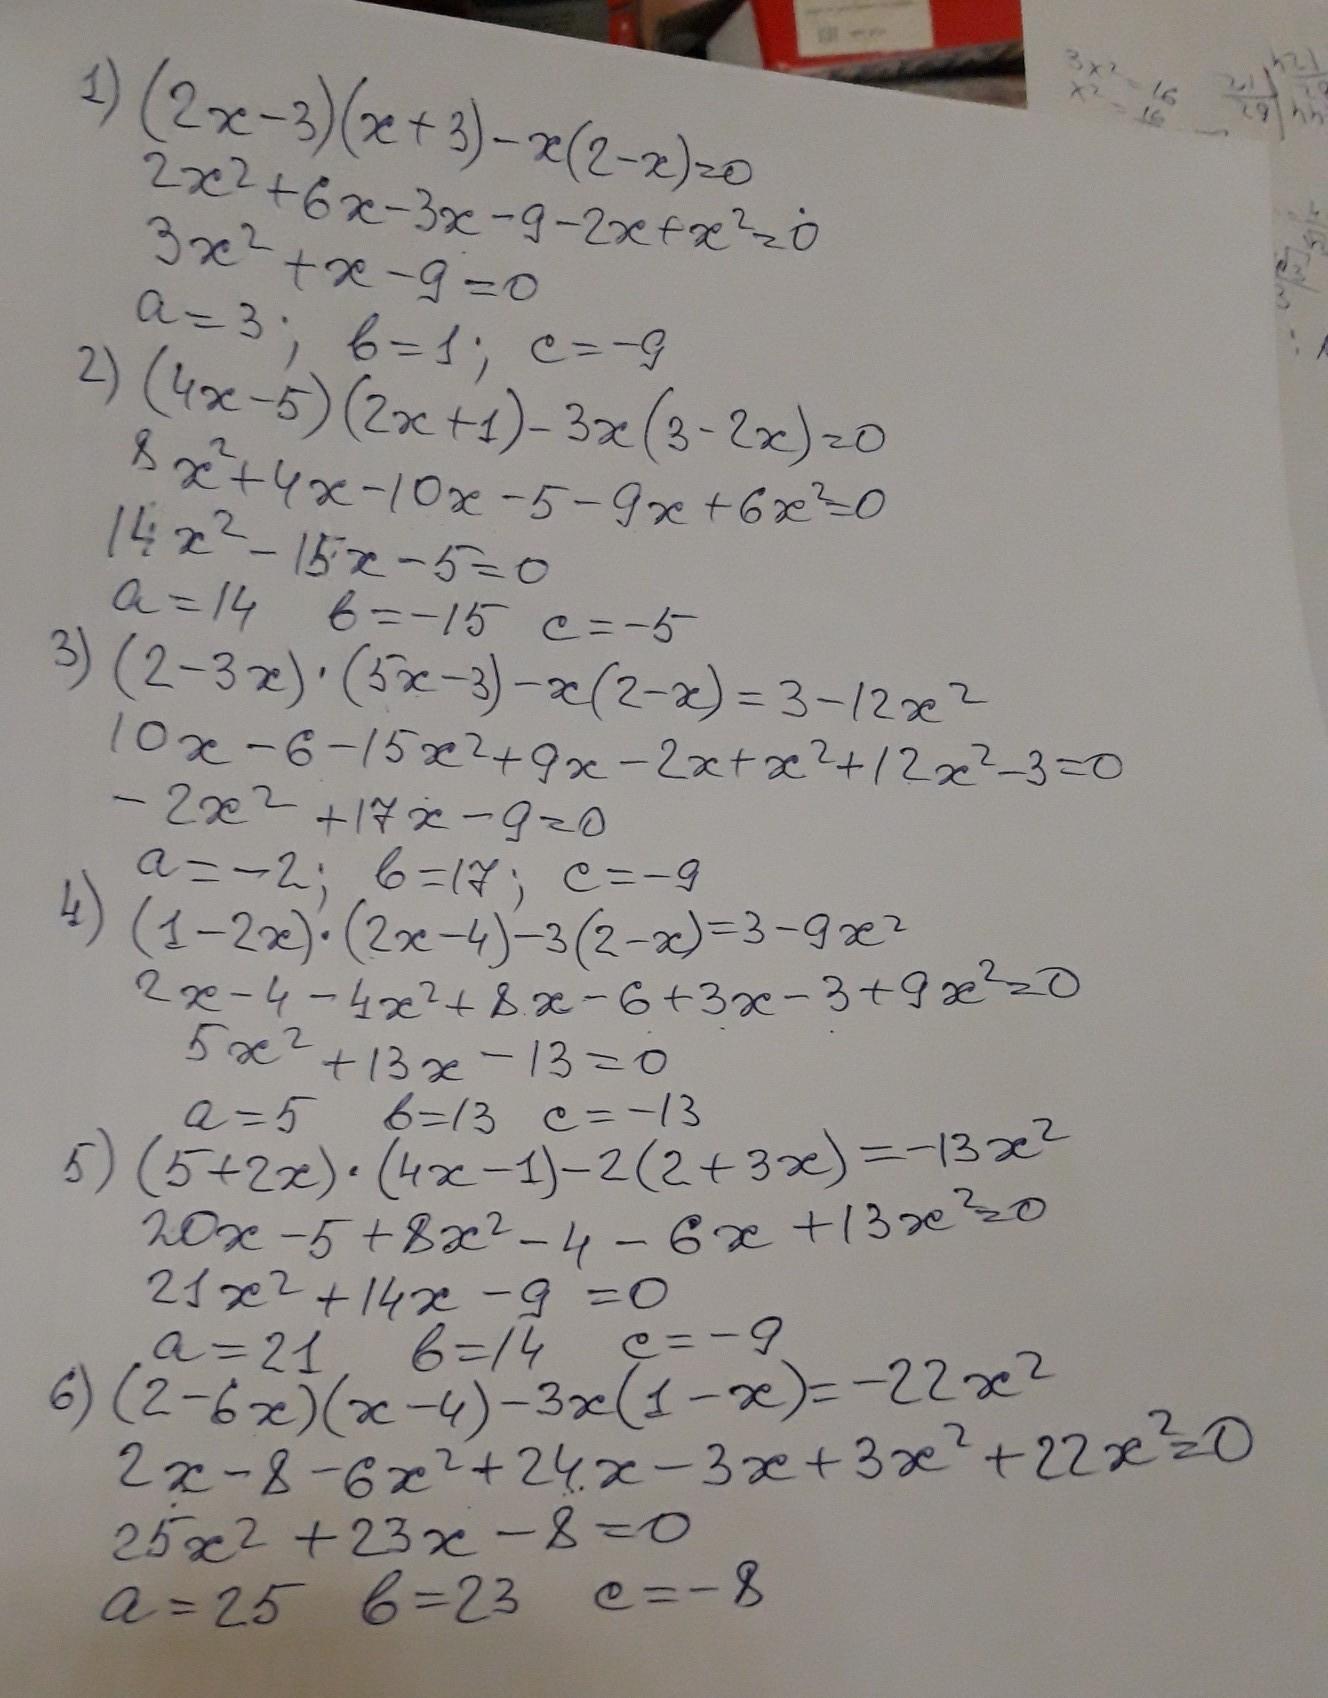 1) (2x-3)(x+3)-x(2-x)=0
2x²+6x-3x-9-2x+x²=0
3x²+x-9=0
a=3; в=1; c=-9
2) (4x-5)(2x+1)-3x(3-2x)=0
8x²+4x-10x-5-9x+6x²=0
14x²-15x-5=0
a=14 в=-15 c=-5
3) (2-3x)·(5x-3)-x(2-x)=3-12x²
10x-6-15x²+9x-2x+x²+12x²-3=0
-2x²+17x-9=0
a=-2; в=17; c=-9
4) (1-2x)·(2x-4)-3(2-x)=3-9x²
2x-4-4x²+8x-6+3x-3+9x²=0
5x²+13x-13=0
a=5 в=13 c=-13
5) (5+2x)·(4x-1)-2(2+3x)=-13x²
20x-5+8x²-4-6x+13x²=0
21x²+14x-9=0
a=21 в=14 c=-9
6) (2-6x)(x-4)-3x(1-x)=-22x²
2x-8-6x²+24x-3x+3x²+22x²=0
25x²+23x-8=0
a=25 в=23 c=-8
3x²=16